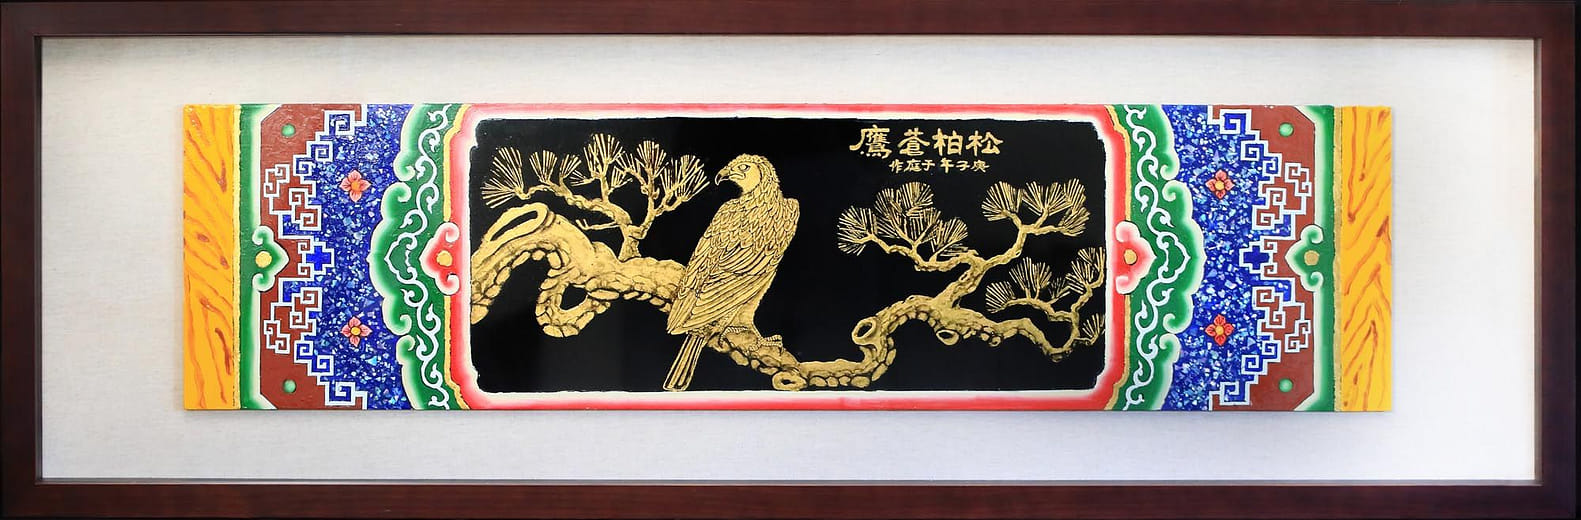 松柏蒼鷹
庚子年于庭作